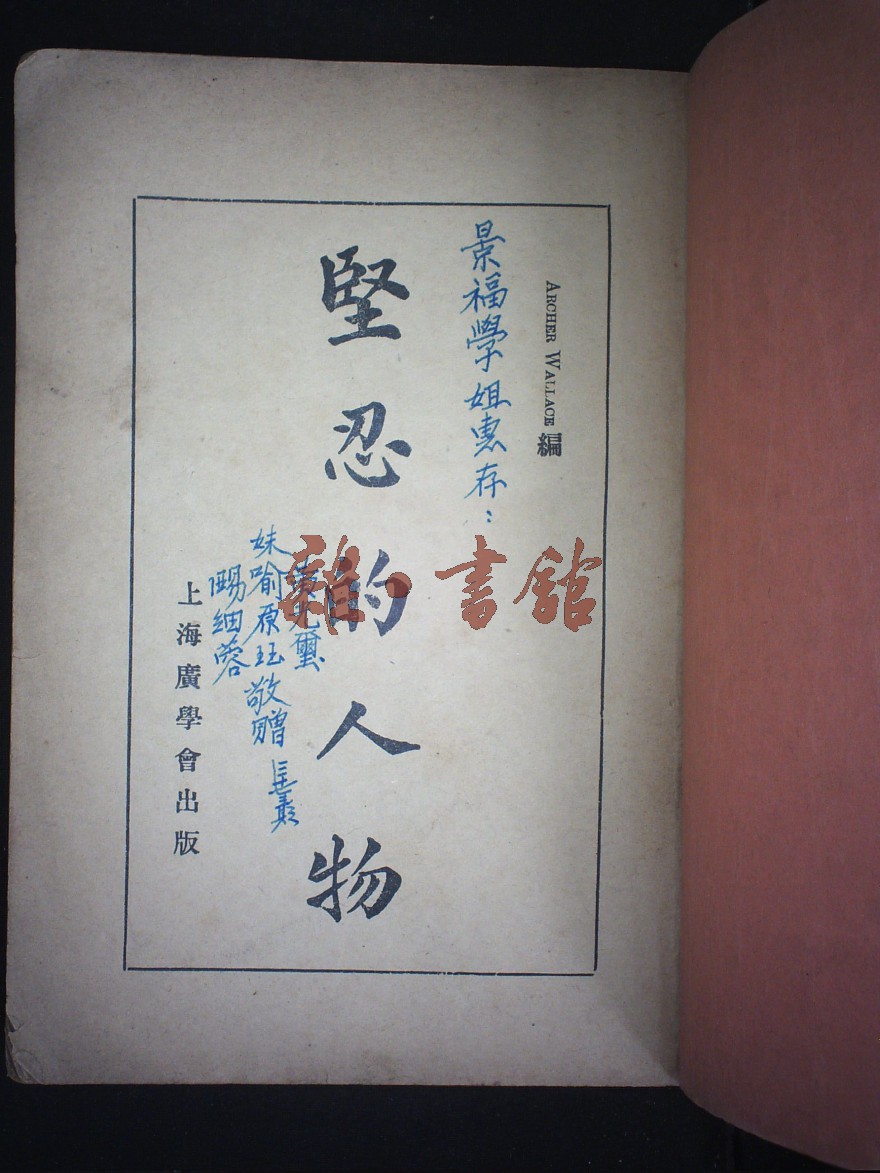 ARCHER WALLACE 編
景福學姐惠存：
堅忍的人物
妹喻原珏敬贈
細蓉
上海廣學會出版
雜·書館